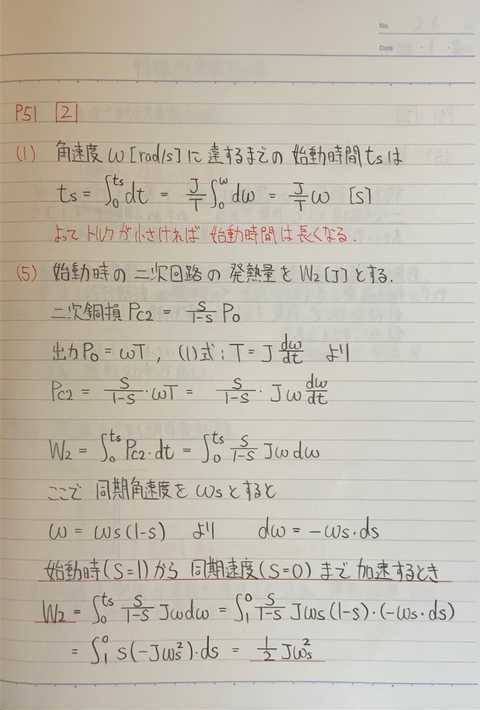 No.
Date
P51 2
(1) 角速度 ω [rad/s] に達するまでの 始動時間 ts は
ts = ∫₀^ts dt = J/T ∫₀^ω dω = J/T ω [s]
よって トルクが小さければ 始動時間は長くなる.
(5) 始動時の 二次回路の 発熱量を W₂ [J] とする.
二次銅損 Pc2 = s/(1-s) Po
出力 Po = ωT , (1)式 : T = J dω/dt より
Pc2 = s/(1-s) · ωT = s/(1-s) · Jω dω/dt
W₂ = ∫₀^ts Pc2 · dt = ∫₀^ts s/(1-s) Jω dω
ここで 同期角速度を ωs とすると
ω = ωs (1-s) より dω = -ωs · ds
始動時(s=1)から 同期速度(s=0) まで 加速するとき
W₂ = ∫₀^ts s/(1-s) Jω dω = ∫₁⁰ s/(1-s) Jωs (1-s) · (-ωs · ds)
= ∫₁⁰ s(-Jωs²) · ds = 1/2 Jωs²